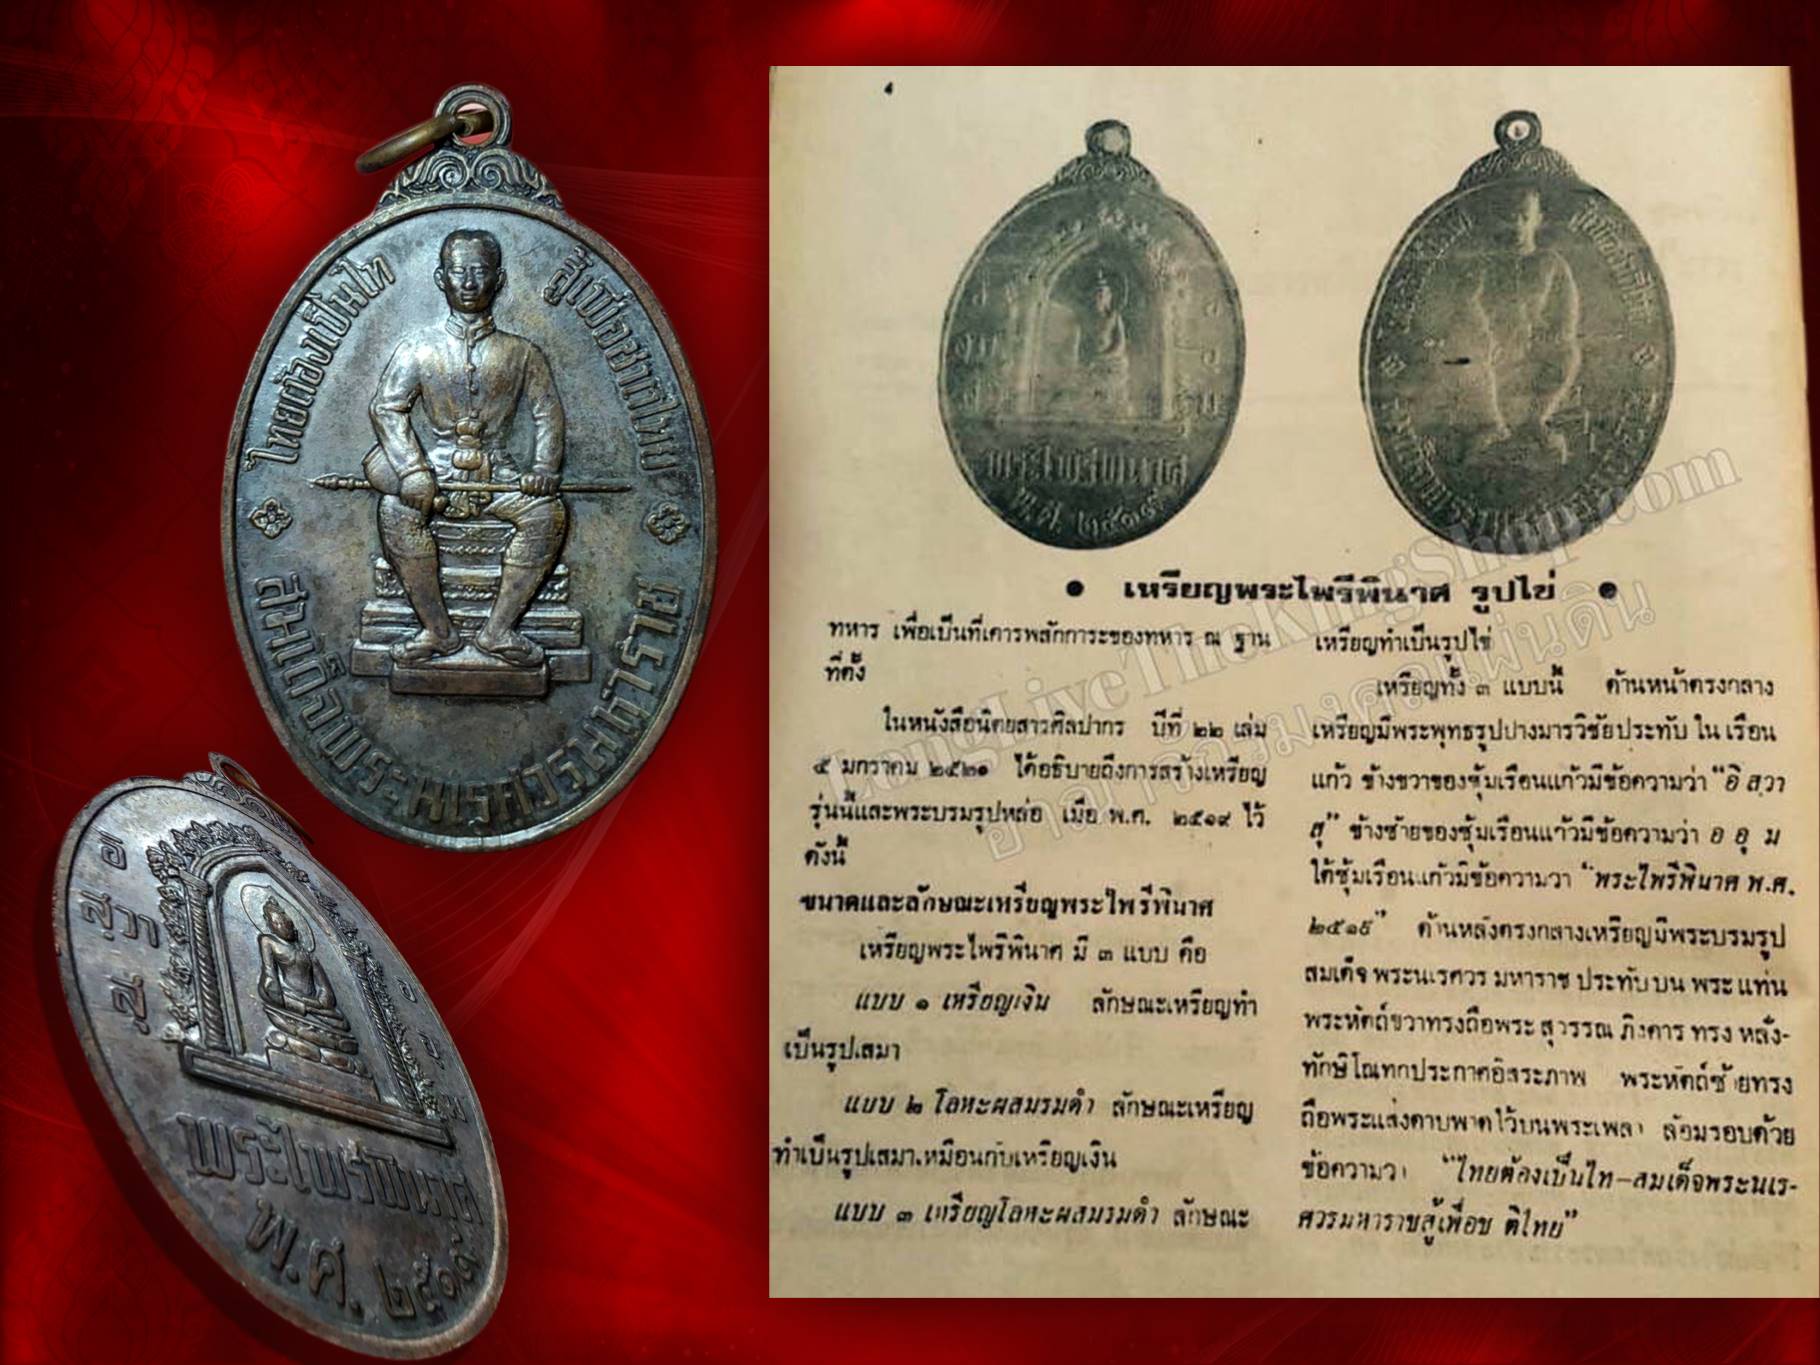 ไทยต้องเป็นไท
สู้เพื่อชาติไทย
สมเด็จพระนเรศวรมหาราช
อิ
สฺวา
สุ
อ
อุ
ม
พระไพรีพินาศ
พ.ศ. ๒๕๑๙
๔
พระไพรีพินาศ
พ.ศ. ๒๕๑๙
๏ เหรียญพระไพรีพินาศ รูปไข่ ๏
ทหาร เพื่อเป็นที่เคารพสักการะของทหาร ณ ฐาน
ที่ตั้ง
ในหนังสือนิตยสารศิลปากร ปีที่ ๒๒ เล่ม
๕ มกราคม ๒๕๒๑ ได้อธิบายถึงการสร้างเหรียญ
รุ่นนี้และพระบรมรูปหล่อ เมื่อ พ.ศ. ๒๕๑๙ ไว้
ดังนี้
ขนาดและลักษณะเหรียญพระไพรีพินาศ
เหรียญพระไพรีพินาศ มี ๓ แบบ คือ
แบบ ๑ เหรียญเงิน ลักษณะเหรียญทำ
เป็นรูปเสมา
แบบ ๒ โลหะผสมรมดำ ลักษณะเหรียญ
ทำเป็นรูปเสมาเหมือนกับเหรียญเงิน
แบบ ๓ เหรียญโลหะผสมรมดำ ลักษณะ
เหรียญทำเป็นรูปไข่
เหรียญทั้ง ๓ แบบนี้ ด้านหน้าตรงกลาง
เหรียญมีพระพุทธรูปปางมารวิชัยประทับ ใน เรือน
แก้ว ข้างขวาของซุ้มเรือนแก้วมีข้อความว่า "อิ สฺวา
สุ" ข้างซ้ายของซุ้มเรือนแก้วมีข้อความว่า อ อุ ม
ใต้ซุ้มเรือนแก้วมีข้อความว่า "พระไพรีพินาศ พ.ศ.
๒๕๑๙" ด้านหลังตรงกลางเหรียญมีพระบรมรูป
สมเด็จ พระนเรศวร มหาราช ประทับ บน พระ แท่น
พระหัตถ์ขวาทรงถือพระ สุวรรณ ภิงคาร ทรง หลั่ง-
ทักษิโณทกประกาศอิสระภาพ พระหัตถ์ซ้ายทรง
ถือพระแสงดาบพาดไว้บนพระเพลา ล้อมรอบด้วย
ข้อความว่า "ไทยต้องเป็นไท-สมเด็จพระนเร-
ศวรมหาราชสู้เพื่อชาติไทย"
LongLiveTheKingShop.com
อาณาจักรมงคลแผ่นดิน